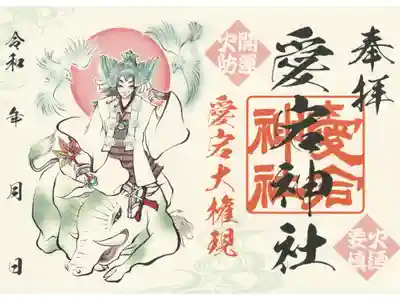 奉拝
愛宕神社
愛宕
神社
開運
火防
愛宕大権現
令和 年 月 日